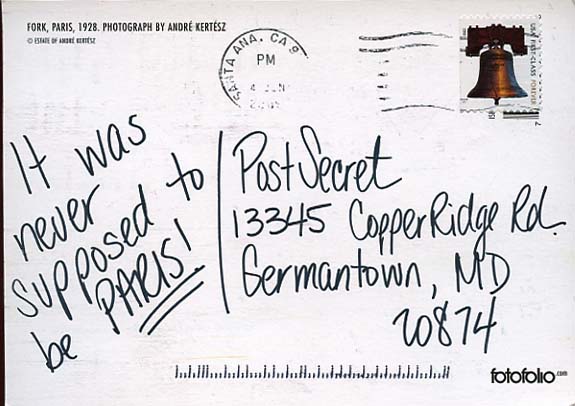 FORK, PARIS, 1928. PHOTOGRAPH BY ANDRÉ KERTÉSZ
© ESTATE OF ANDRÉ KERTÉSZ
SANTA ANA, CA 9
PM
4 JUN
USA FIRST-CLASS FOREVER
It was
never
supposed to
be PARIS!
PostSecret
13345 CopperRidge Rd.
Germantown, MD
20874
fotofolio.com